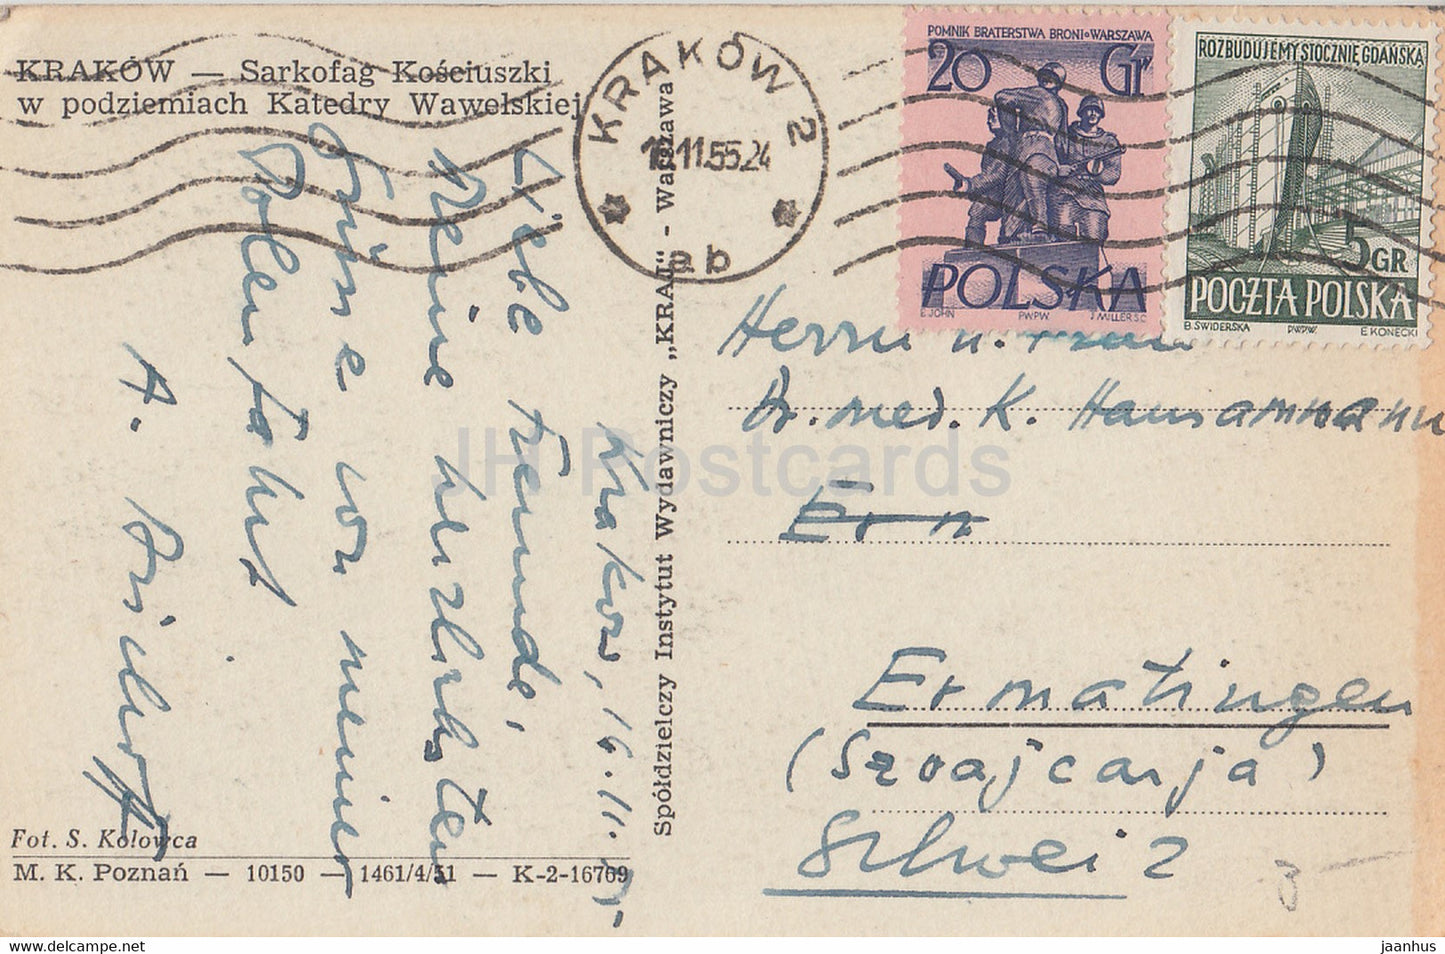 KRAKÓW — Sarkofag Kościuszki
w podziemiach Katedry Wawelskiej
KRAKÓW 2
16.11.55.24
ab
POMNIK BRATERSTWA BRONI • WARSZAWA
20 Gr
POLSKA
E. JOHN PWPW J. MILLER SC.
ROZBUDUJEMY STOCZNIĘ GDAŃSKĄ
5 GR
POCZTA POLSKA
B. ŚWIDERSKA PWPW. E. KONECKI
Kraków, 16.11.55
Liebe Freunde,
Meine herzlichsten
Grüsse von meiner
Polenfahrt
A.
Spółdzielczy Instytut Wydawniczy „KRAJ” - Warszawa
Herrn u. Frau
Dr. med. K. Hausammann
Erm
Ermatingen
(Szwajcaria)
Schweiz
Fot. S. Kolowca
M. K. Poznań — 10150 — 1461/4/51 — K-2-16769
3
JH Postcards
delcampe.net
jaanhus